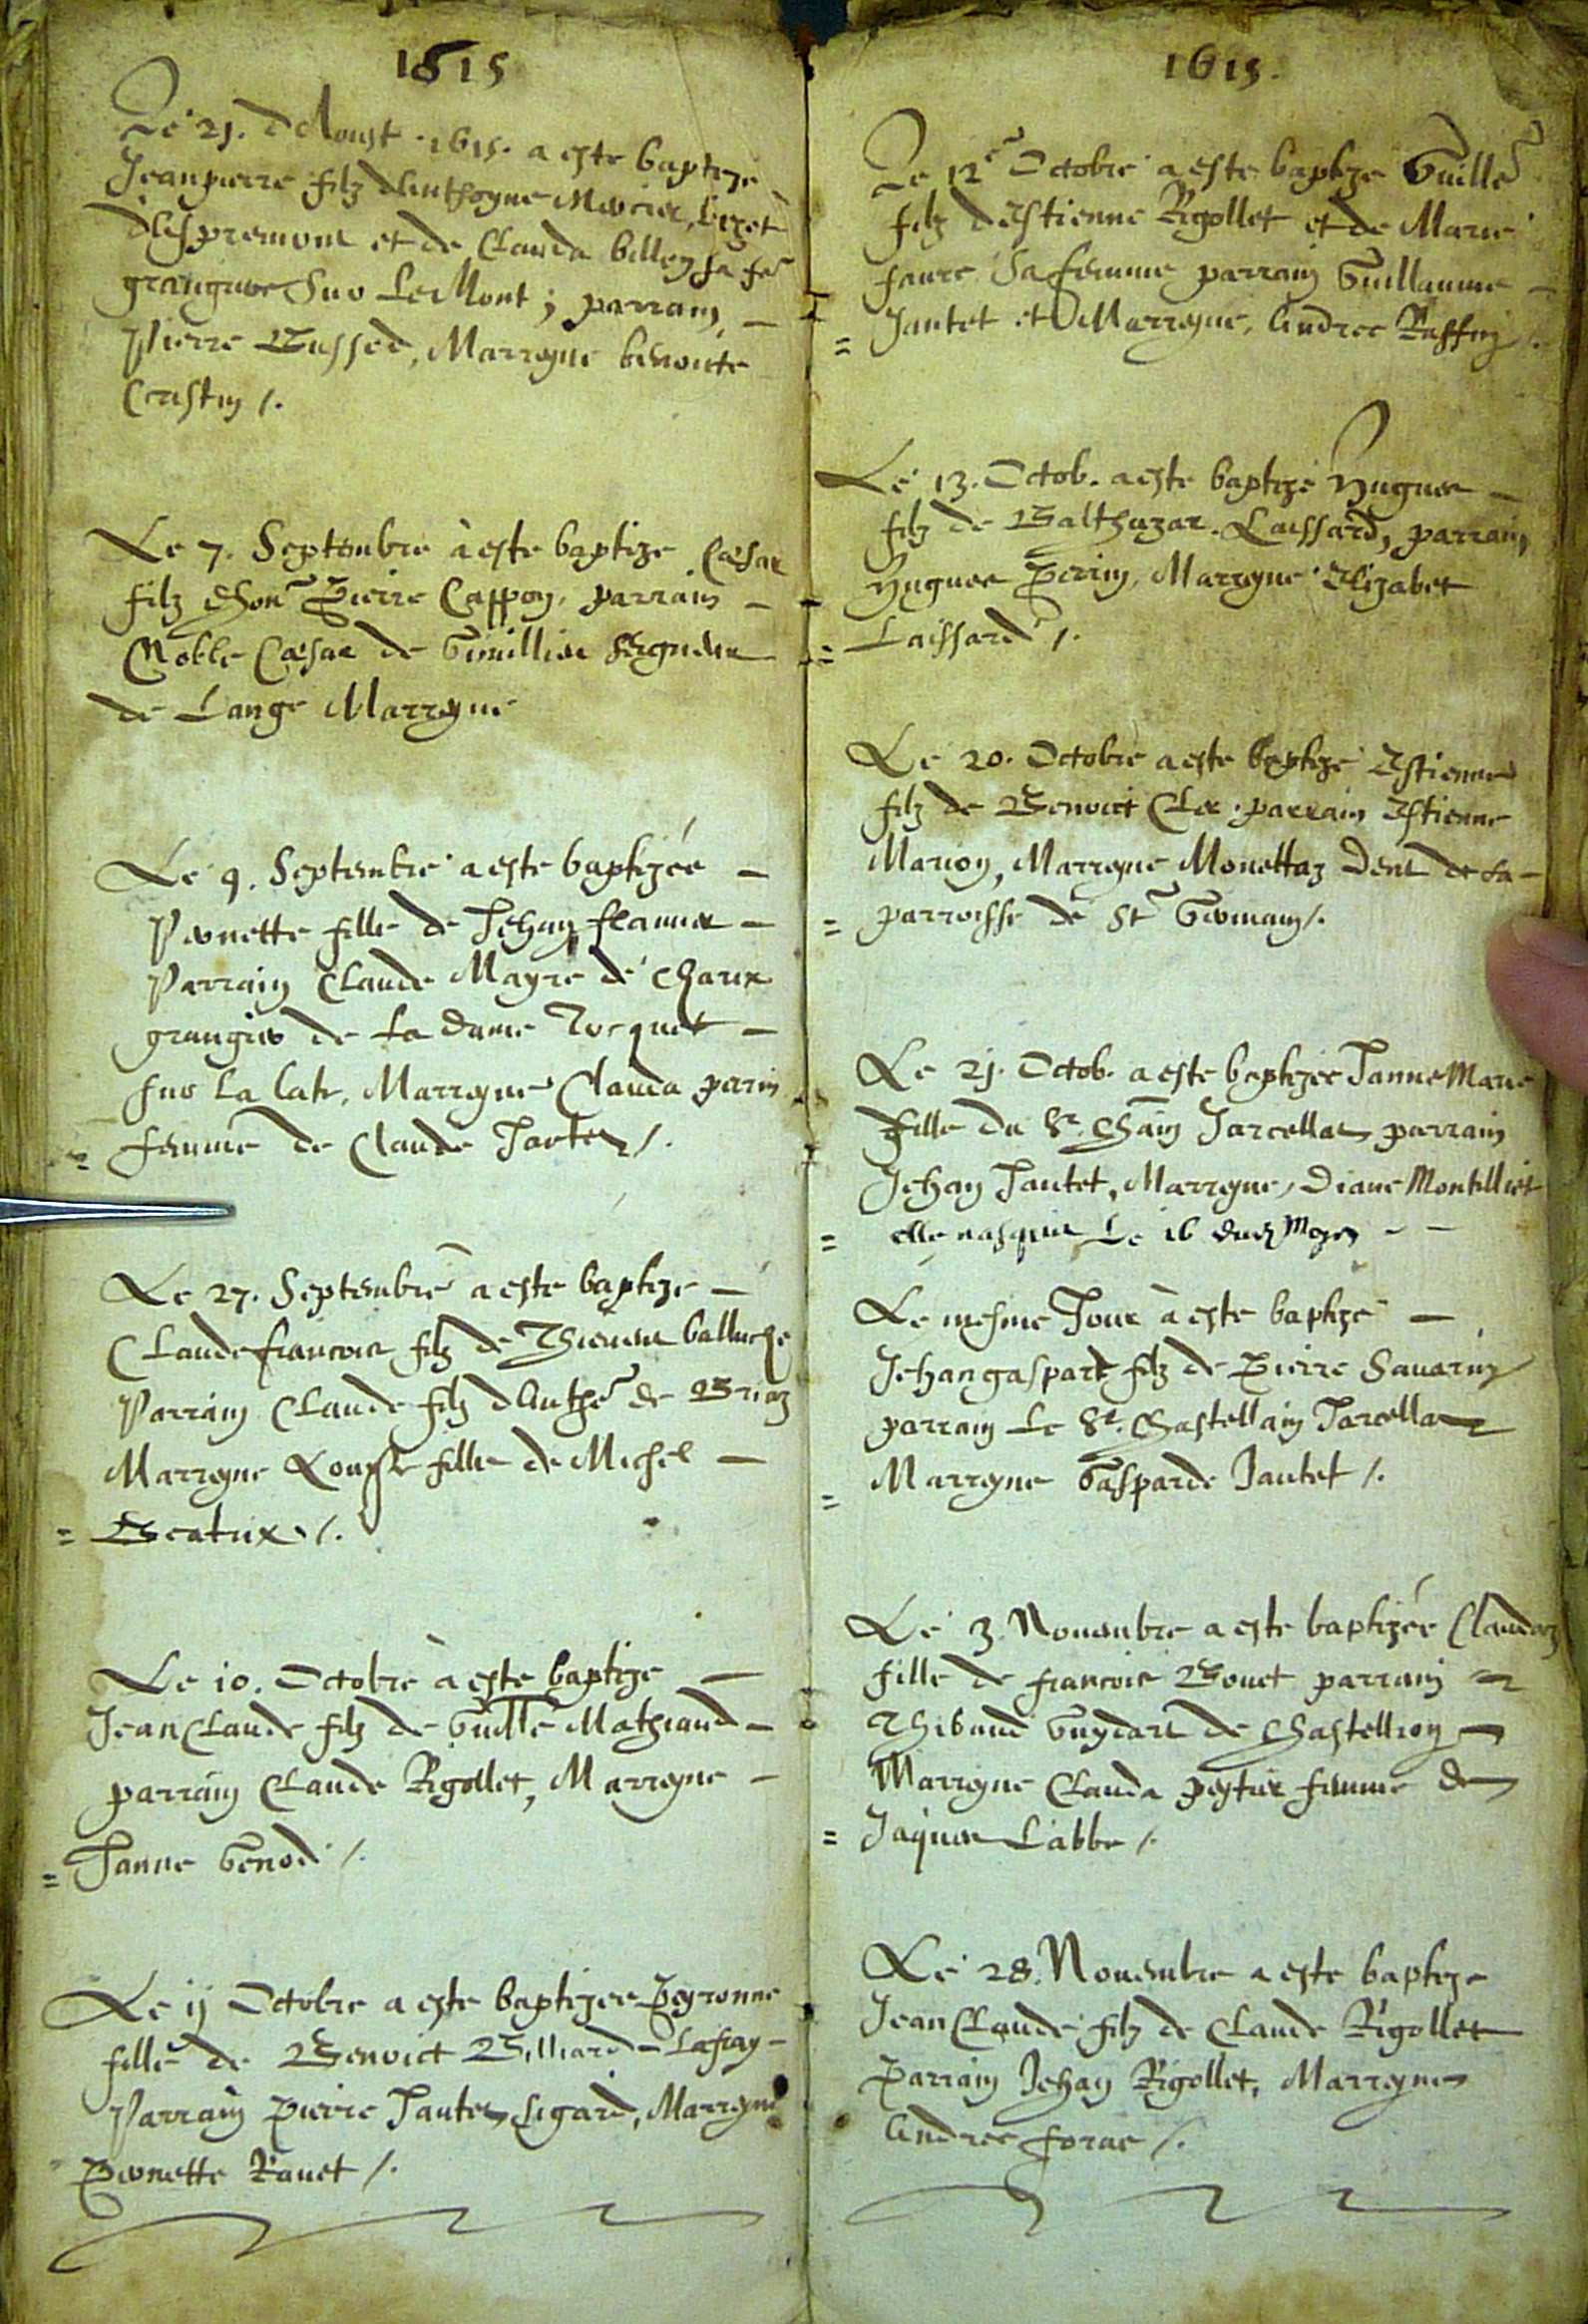 1615
Le 21. d'Aoust 1615. a este baptize
Jeanpierre filz d'Anthoyne Mercier,
d'Aspremont et de Clauda billiey sa fe
grangiers sur Le Mont; parrain,
Pierre Bussod, Marreyne benoite
Crestin /.
Le 7. Septembre a este baptize Cæsar
filz d'hon Pierre Cappon, parrain
Noble Cæsar de Seigneur
de Lange Marreyne
Le 9. Septembre a este baptizée
Pernette fille de Jehan
Parrain Claude Mayre de Charix
grangier de La dame Tocquet
sur La Late, Marreyne Clauda perrin
femme de Claude Jantet /.
Le 27. Septembre a este baptize
Claudefrancois filz de Thievent balluche
Parrain Claude filz d'Anthe de
Marreyne Loyse fille de Michel
= Beatrix /.
Le 10. Octobre a este baptize
Jean Claude filz de Guille Mathiand
parrain Claude Rigollet, Marreyne
= Janne Genod /.
Le 11 Octobre a este baptizee Peyronne
fille de Benoict Billiard
Parrain Pierre Jantet Ligard, Marreyne
Pernette Ravet /.
1615.
Le 12e Octobre a este baptize Guille
filz d'Estienne Rigollet et de Marie
faure sa femme parrain Guillaume
= Jantet et Marreyne, Andree Raffin /.
Le 13. Octob. a este baptizé Hugues
filz de Balthazar Laissard, parrain
Hugues Perrin, Marreyne Elizabet
= Laissard /.
Le 20. Octobre a este baptize Estienne
filz de Benoict Cler. parrain Estienne
Marion, Marreyne Monettaz de la
= parroisse de St Germain /.
Le 21. Octob. a este baptizee Janne Marie
fille du Sr. Chain Jarcellat parrain
Jehan Jantet, Marreyne, Diane Montillet
= elle nasquit Le 16 dud Moys
Le mesme Jour a este baptizé
Jehangaspard filz de Pierre Savarin
parrain Le Sr. Chastellain Jarcellat
= Marreyne Gasparde Jantet /.
Le 3. Novembre a este baptizée Claudaz
fille de francois Bovet parrain
Thibaud Guydard de Chastellion
Marreyne Clauda femme de
= Jaques Labbe /.
Le 28. Novembre a este baptize
Jean Claude filz de Claude Rigollet
Parrain Jehan Rigollet, Marreyne
Andree foras /.